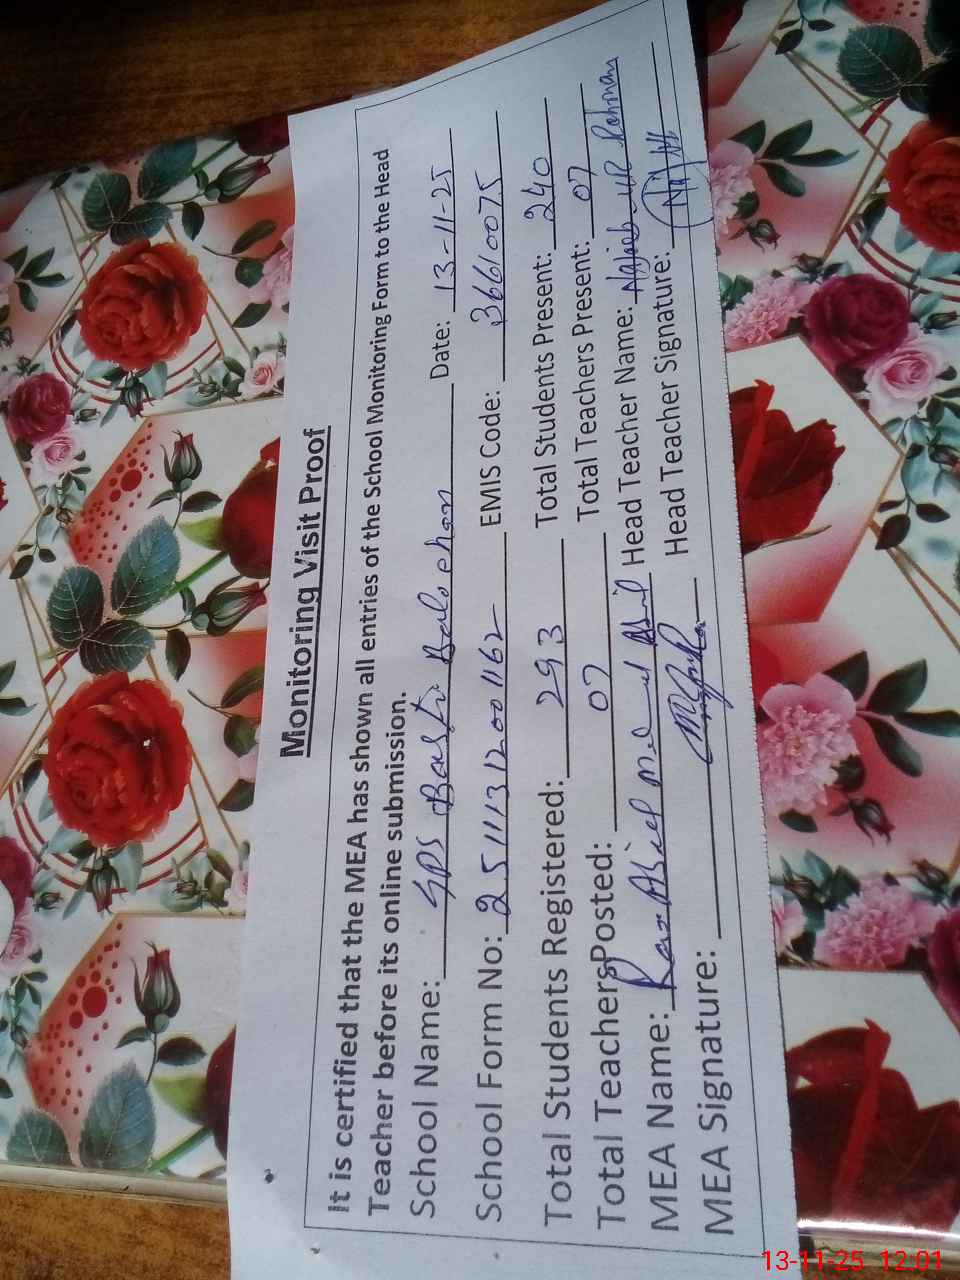 Monitoring Visit Proof
It is certified that the MEA has shown all entries of the School Monitoring Form to the Head
Teacher before its online submission.
School Name: GPS Basti Balochan Date: 13-11-25
School Form No: 25111312001162 EMIS Code: 36610075
Total Students Registered: 293 Total Students Present: 240
Total Teachers Posted: 07 Total Teachers Present: 07
MEA Name: Head Teacher Name: Najeeb ur Rehman
MEA Signature: Head Teacher Signature:
13-11-25 12:01